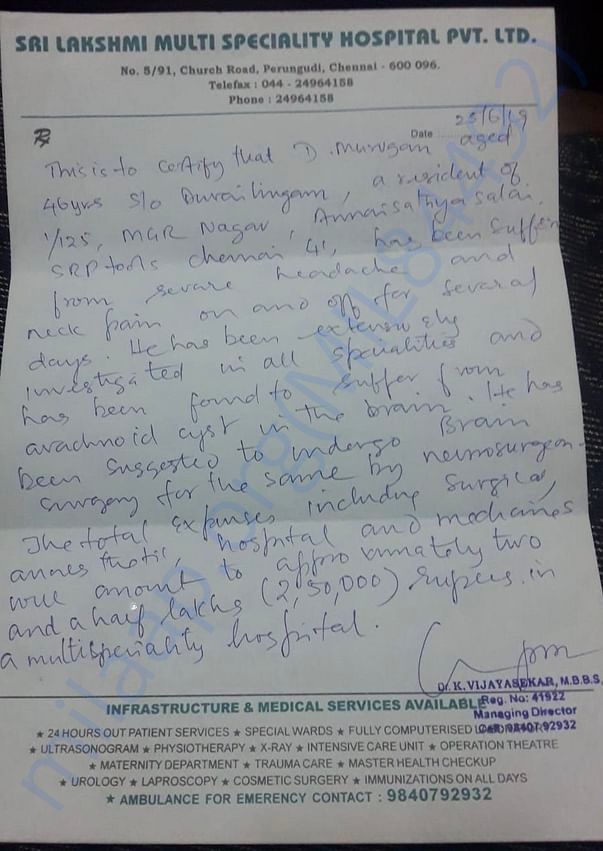 SRI LAKSHMI MULTI SPECIALITY HOSPITAL PVT. LTD.
No. 5/91, Church Road, Perungudi, Chennai - 600 096.
Telefax : 044 - 24964158
Phone : 24964158
Rx
Date 25/6/19
This is to certify that D. Murugan aged
46yrs s/o Durailingam, a resident of
1/125, MGR Nagar, Annaisathya Salai,
SRP tools Chennai 41, has been suffering
from severe headache and
neck pain on and off for several
days. He has been extensively
investigated in all specialities and
has been found to suffer from
arachnoid cyst in the brain. He has
been suggested to undergo Brain
surgery for the same by neurosurgeon.
The total expenses including surgical,
annesthetic, hospital and medicines
will amount to approximately two
and a half lakhs (2,50,000) rupees in
a multispeciality hospital.
Dr. K. VIJAYASEKAR, M.B.B.S.
Reg. No: 41922
Managing Director
Cell: 98407 92932
INFRASTRUCTURE & MEDICAL SERVICES AVAILABLE
★ 24 HOURS OUT PATIENT SERVICES ★ SPECIAL WARDS ★ FULLY COMPUTERISED
★ ULTRASONOGRAM ★ PHYSIOTHERAPY ★ X-RAY ★ INTENSIVE CARE UNIT ★ OPERATION THEATRE
★ MATERNITY DEPARTMENT ★ TRAUMA CARE ★ MASTER HEALTH CHECKUP
★ UROLOGY ★ LAPROSCOPY ★ COSMETIC SURGERY ★ IMMUNIZATIONS ON ALL DAYS
★ AMBULANCE FOR EMERENCY CONTACT : 9840792932
milaap.org(MIL84452)